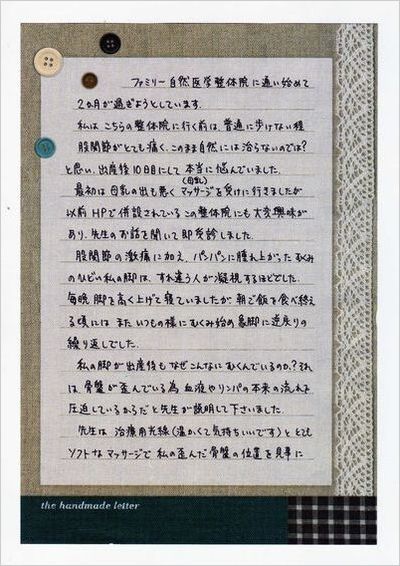 ファミリー自然医学整体院に通い始めて
2ヵ月が過ぎようとしています。
私はこちらの整体院に行く前は、普通に歩けない程
股関節がとても痛く、このまま自然には治らないのでは?
と思い、出産後10日目にして本当に悩んでいました。
最初は母乳の出も悪く(母乳)マッサージを受けに行きましたが
以前HPで併設されているこの整体院にも大変興味が
あり、先生のお話を聞いて即受診しました。
股関節の激痛に加え、パンパンに腫れ上がったむくみ
のひどい私の脚は、すれ違う人が凝視するほどでした。
毎晩脚を高く上げて寝ていましたが朝ご飯を食べ終え
る頃には またいつもの様にむくみ始め象脚に逆戻りの
繰り返しでした。
私の脚が出産後もなぜこんなにむくんでいるのか?それ
は骨盤が歪んでいる為血液やリンパの本来の流れを
圧迫しているからだと先生が説明して下さいました。
先生は、治療用光線(温かくて気持ちいいです)ととても
ソフトなマッサージで私の歪んだ骨盤の位置を見事に
the handmade letter